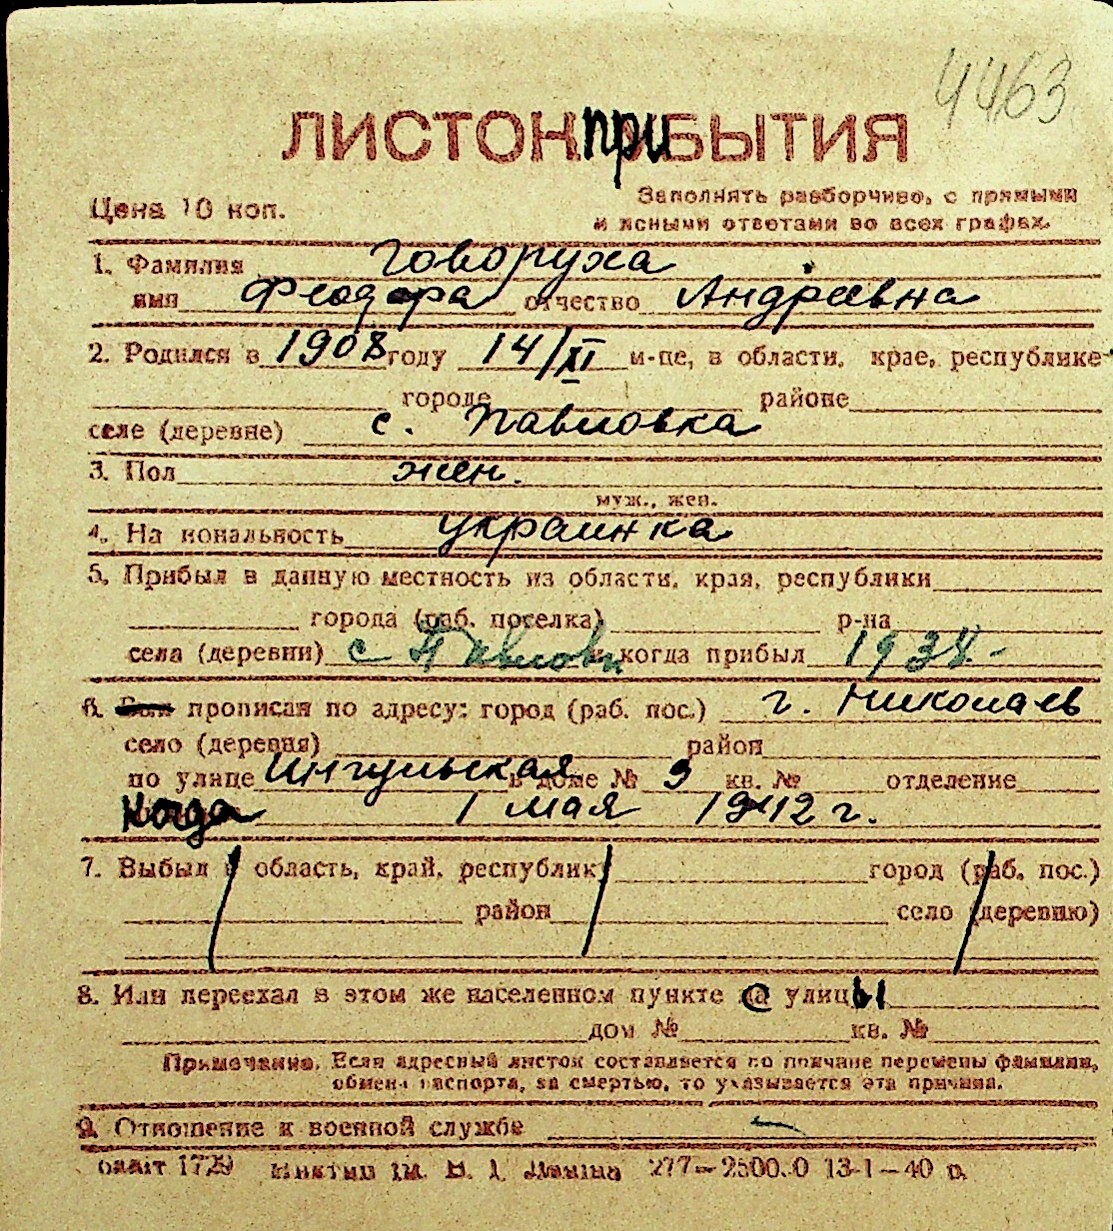 4463
ЛИСТОК при БЫТИЯ
Цена 10 коп.
Заполнять разборчиво, с прямыми
и ясными ответами во всех графах.
1. Фамилия Говоруха
имя Феодора отчество Андреевна
2. Родился в 1908 году 14/XI м-це, в области, крае, республике
городе районе
селе (деревне) с. Павловка
3. Пол жен.
муж., жен.
4. На иональность украинка
5. Прибыл в данную местность из области, края, республики
города (раб. поселка) р-на
села (деревни) с Павловки когда прибыл 1938.-
6. прописан по адресу: город (раб. пос.) г. Николаев
село (деревня) район
по улице Ингульская в доме № 9 кв. № отделение
Когда 1 мая 1942 г.
7. Выбыл в область, край, республик город (раб. пос.)
район село (деревню)
8. Или переехал в этом же населенном пункте с улицы
дом № кв. №
Примечание. Если адресный листок составляется по причине перемены фамилии,
обмена паспорта, за смертью, то указывается эта причина.
9. Отношение к военной службе —
1729 277—2500.0 13-1—40 р.